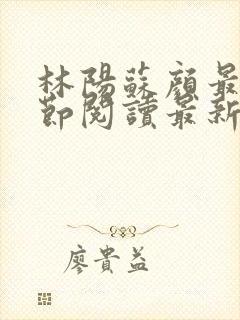 林陽蘇顏最
節閱讀最新
廖貴益